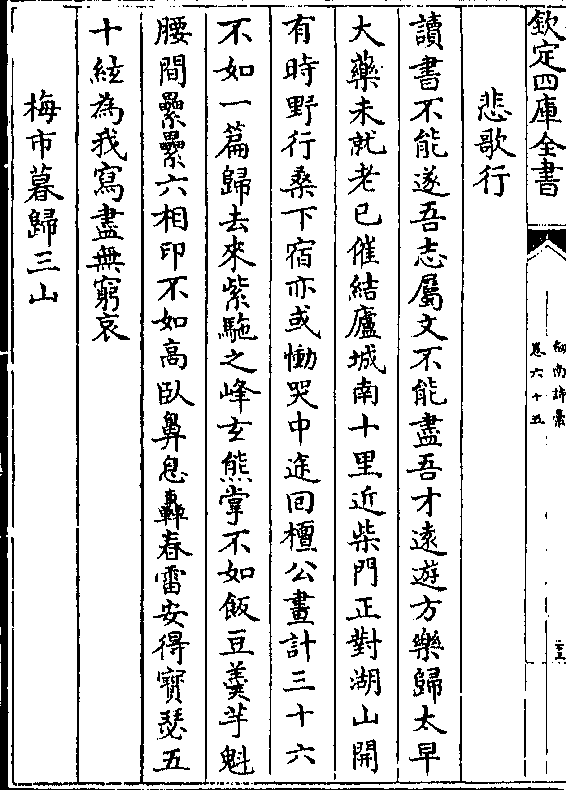 欽定四庫全書
劍南詩槀
卷六十五
悲歌行
讀書不能遂吾志屬文不能盡吾才逺遊方樂歸太早
大藥未就老已催結廬城南十里近柴門正對湖山開
有時野行桑下宿亦或慟哭中途回檀公畫計三十六
不如一篇歸去來紫駞之峰玄熊掌不如飯豆羮芋魁
腰間纍纍六相印不如高臥鼻息轟春雷安得寳瑟五
十絃為我寫盡無窮哀
梅市暮歸三山